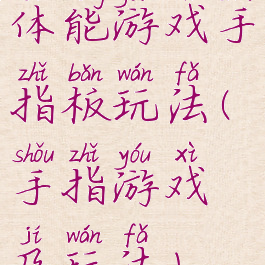 体能游戏手
zhǐ bǎn wán fǎ
指板玩法(
shǒu zhǐ yóu xì
手指游戏
jí wán fǎ
及玩法)